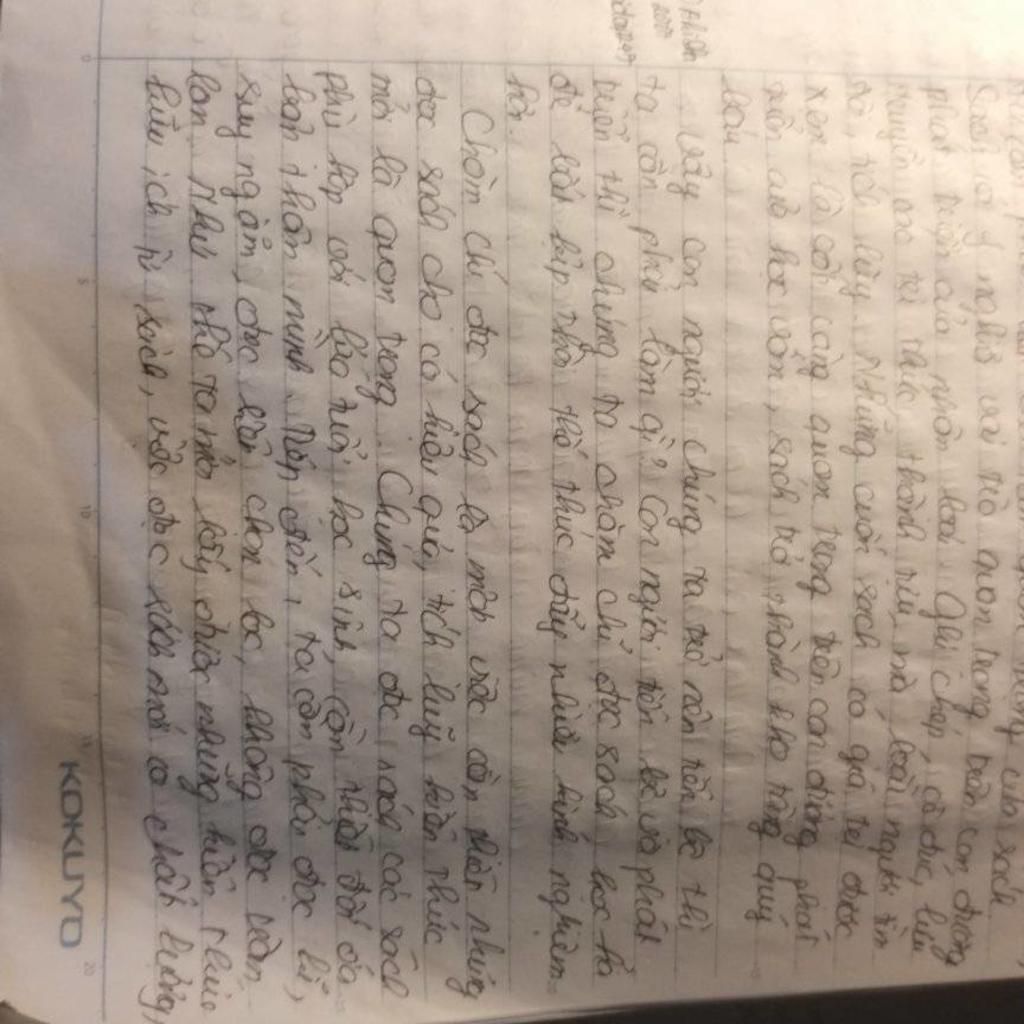 của sách
Sách có ý nghĩa vai trò quan trọng trên con đường
phát triển của nhân loại. Ghi chép, cô đúc, lưu
truyền mọi tri thức, thành tựu, mà loài người tìm
tòi, tích lũy. Những cuốn sách có giá trị được
xem là cột quan trọng trên con đường phát
triển của học vấn, sách trở thành kho tàng quý
báu
Vậy con người chúng ta trở nên tiến bộ thì
ta cần phải làm gì? Con người tiến bộ và phát
triển thì chúng ta chăm chỉ đọc sách học
để bắt kịp thức đẩy nhiều kinh nghiệm
hơn.
Chăm chỉ đọc sách là một việc cần những
đọc sách cho có hiệu quả, tích luỹ kiến thức
mới là quan trọng. Chúng ta đọc sách các sách
phù hợp với lứa tuổi học sinh, cần
bản thân mình. ta cần phải đọc kĩ,
suy ngẫm, đọc chọn lọc, không đọc tràn
lan. Như thế ta mới lấy được những kiến thức
hữu ích từ sách, việc đọc sách mới có chất lượng,
KOKUYO